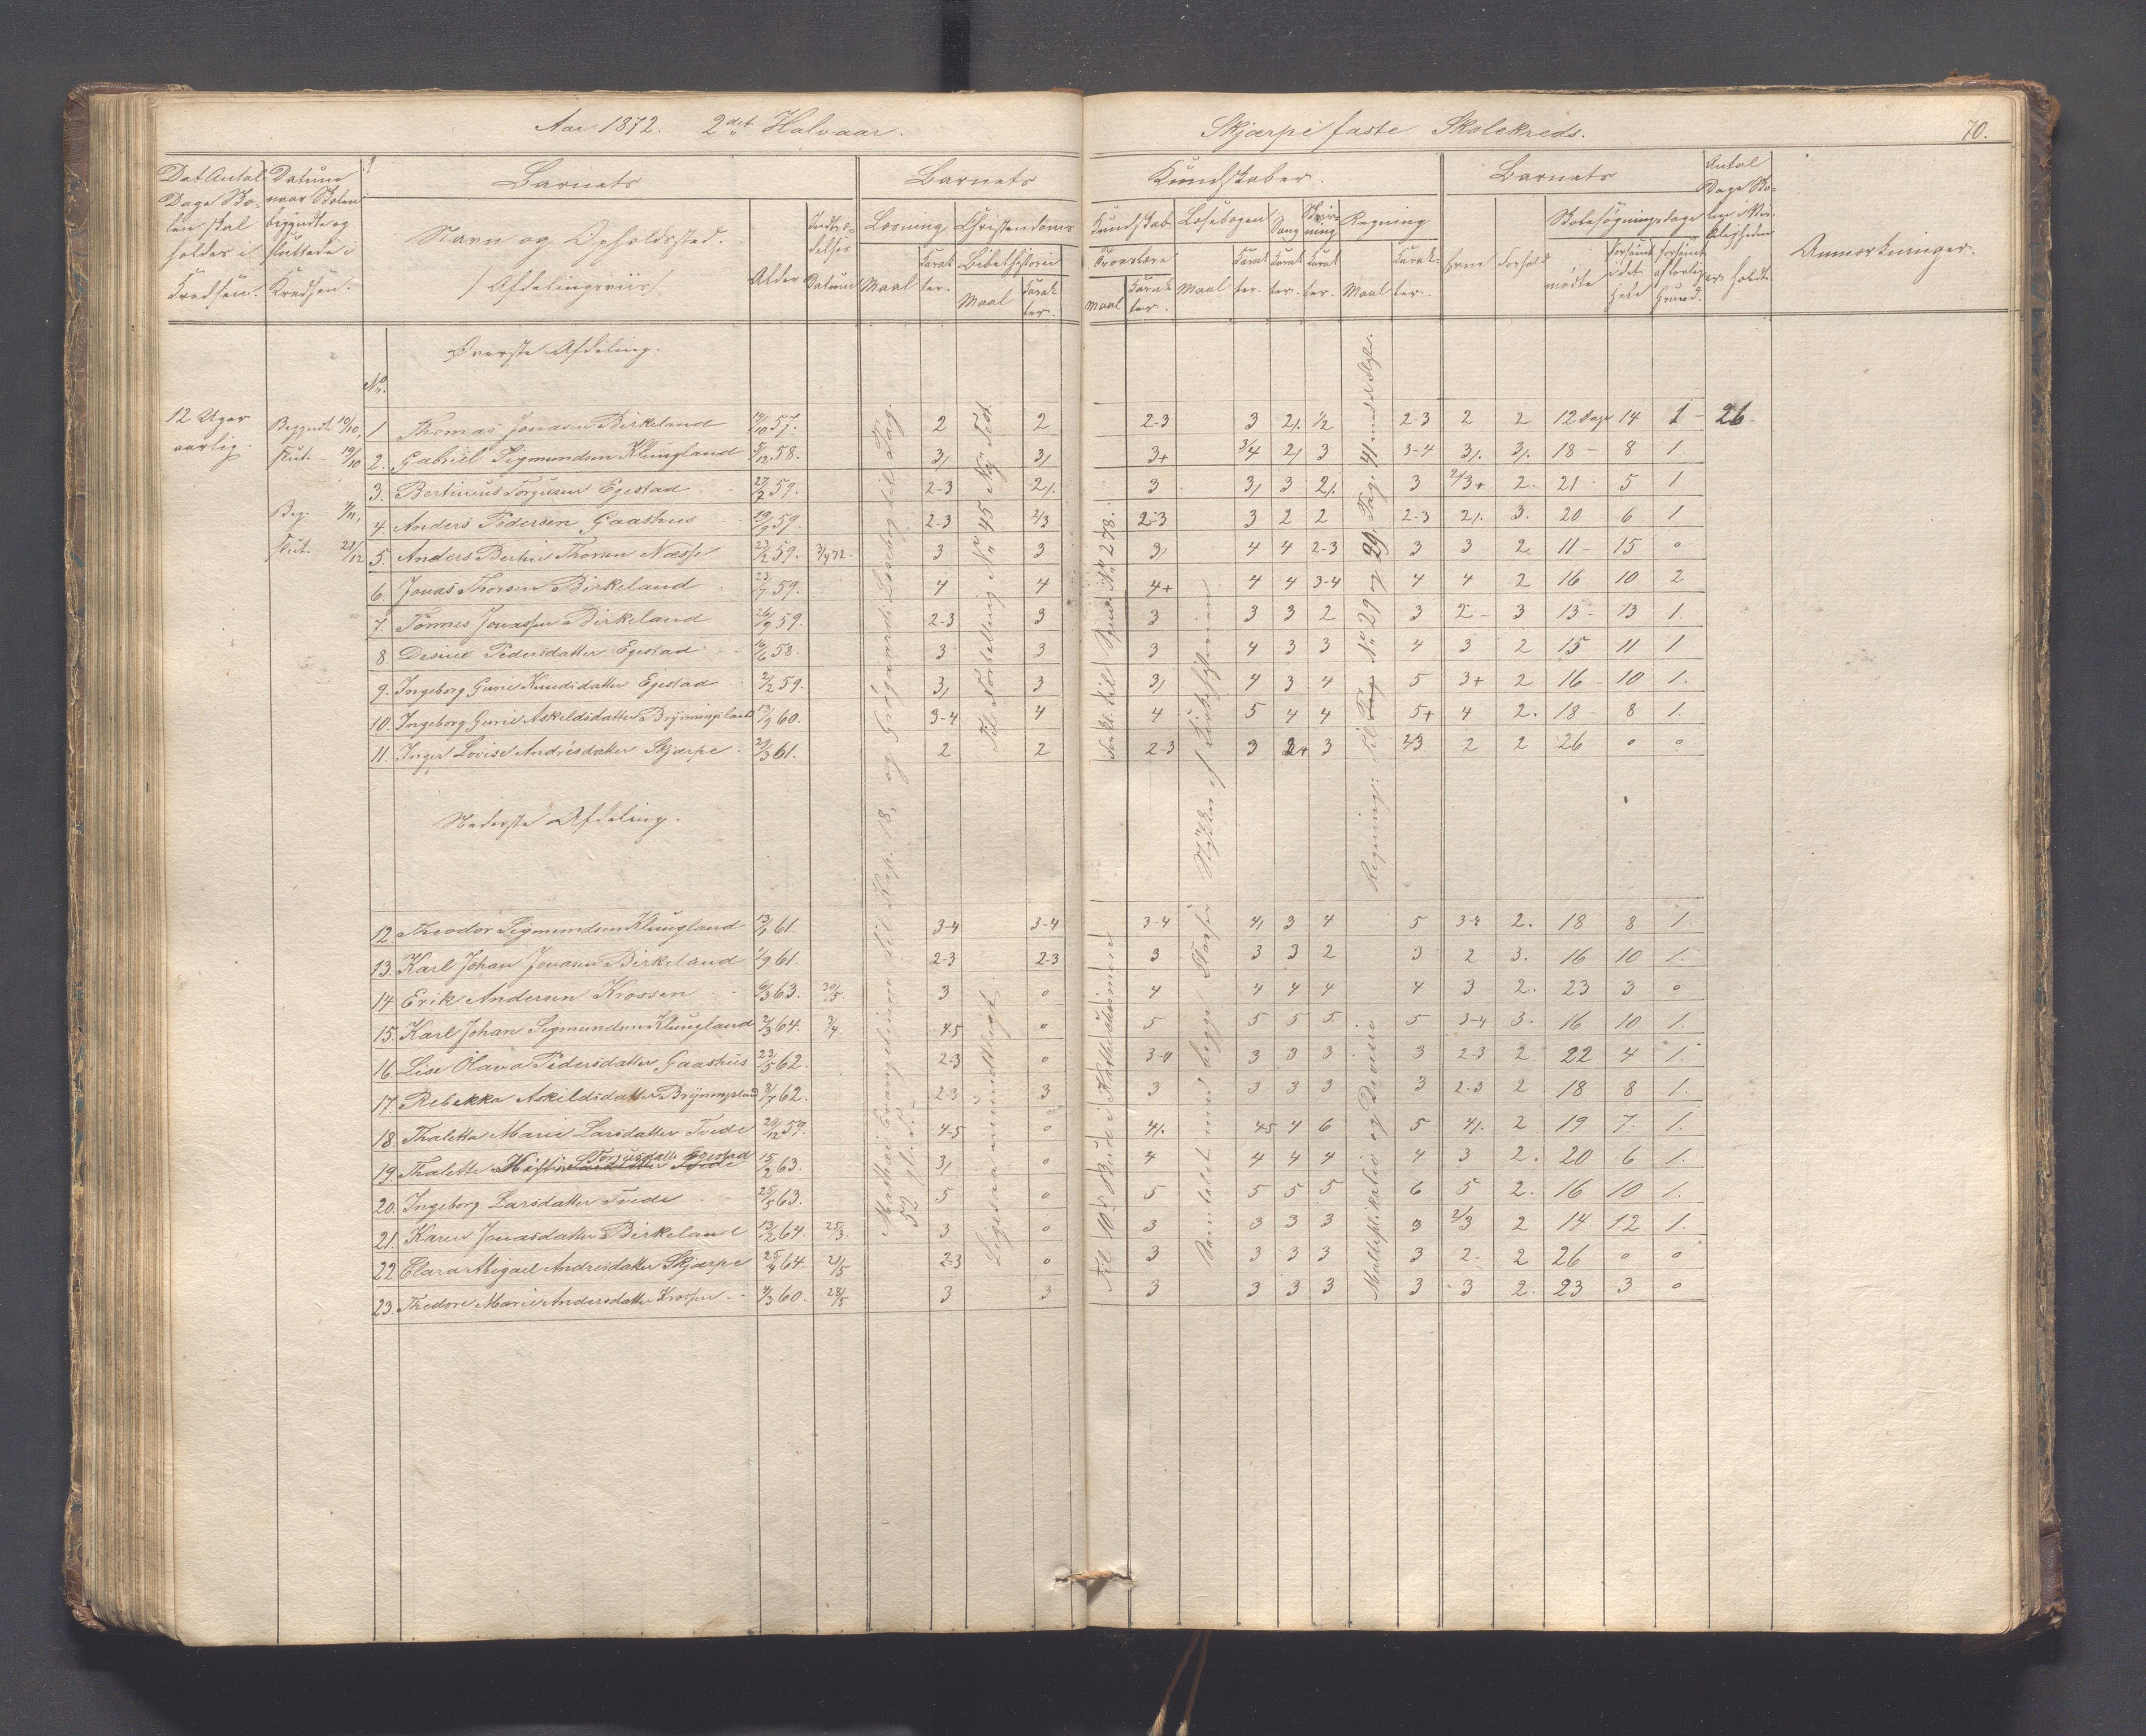 Aar 1872. 2det Halvaar.
Skjærpe faste Skolekreds. 70.
Det Antal Dage Skolen skal holdes i Kredsen.
Datum naar Skolen begyndte og sluttede i Kredsen.
Barnets
Navn og Opholdssted.
/Afdelingsviis/
Alder
Indtrædelses Datum
Barnets Kundskaber.
Læsning
Maal
Karakter.
Christendoms Kundskab
Bibelhistorie
Maal
Karakter.
Troeslære
Maal
Karakter.
Læsebogen
Maal
Karakter.
Sang
Karakter.
Skrivning
Karakter.
Regning
Maal
Karakter.
Barnets
Evne
Forhold
Skolesøgningsdage
mødte
forsømt i det Hele
forsømt af lovlig Grund.
Antal Dage Skolen i Virkeligheden er holdt.
Anmærkninger.
Øverste Afdeling.
No.
12 Uger aarlig.
Begyndt 10/10,
slut. 19/10
Beg. 4/11,
slut. 21/12
1. Thomas Jonasen Birkeland 14/10 57. 2 2 2-3 3 2/. 1/2 2-3 2 2 12 Dage 14 1 - 26.
2. Gabriel Sigmundsen Klungland 5/12 58. 3/ 3/ 3+ 3/4 2/ 3 3-4 3/. 3/. 18 - 8 1.
3. Bertinius Torgusen Egestad 27/7 59. 2-3 2/. 3 3/ 3 2/. 3 2/3+ 2. 21 - 5 1
4. Anders Pedersen Gaashus 19/9 59. 2-3 2/3 2-3 3 2 2 2-3 2/. 3. 20 6 1
5. Anders Bertin Thorsen Næsse 23/2 59. 3/4 72. 3 3 3/ 4 4 2-3 3 3 2 11 - 15 0
6. Jonas Thorsen Birkeland 23/7 59. 4 4 4+ 4 4 3-4 4 4 2 16 10 2
7. Tønnes Jonassen Birkeland 26/9 59. 2-3 3 3 3 3 2 3 2 - 3 13 - 13 1.
8. Desine Pedersdatter Egestad 16/6 58. 3 3 3 4 3 3 4 3 2 15 11 1
9. Ingeborg Gurie Knudsdatter Egestad 2/2 59. 3/ 3 3/ 4 3 4 5 3+ 2 16 - 10 1.
10. Ingeborg Gurie Askildsdatter Brynningsland 13/9 60. 3-4 4 4 5 4 4 5+ 4 2. 18 - 8 1.
11. Inger Lovise Andrésdatter Skjærpe 29/3 61. 2 2 2-3 3 2+ 3 2/3 2 2 26 0 0
Nederste Afdeling.
12. Theodor Sigmundsen Klungland 13/1 61. 3-4 3-4 3-4 4/ 3 4 5 3-4 2. 18 8 1.
13. Karl Johan Jonasen Birkeland 1/9 61. 2-3 2-3 3 3 3 2 3 2 3. 16 10 1.
14 Erik Andersen Krossen 6/3 63. 30/5. 3 0 4 4 4 4 4 3 2. 23 3 0
15. Karl Johan Sigmundsen Klungland 2/3 64. 3/4 4-5 0 5 5 5 5. 5 3-4 3. 16 10 1.
16. Lise Olava Pedersdatter Gaashus 23/5 62. 2-3 0 3-4 3 3 3 3 2-3 2 22 4 1.
17. Rebekka Askildsdatter Brynningsland 3/7 62. 2-3 3 3 3 3 3 3 2-3 2 18 8 1.
18. Thaletta Marie Larsdatter Tvede 29/12 59. 4-5 0 4/. 4-5 4 6 5 4/. 2 19 7. 1.
19. Thalette Torgusdatter Egestad 15/2 63. 3/ 0 4 4 4 4 4 3 2. 20 6 1.
20. Ingeborg Larsdatter Tvede 25/5 63. 5 0 5 5 5 5 6 5 2. 16 10 1.
21 Karen Jonasdatter Birkeland 13/2 64. 25/3 3 0 3 3 3 3 3 2/3 2 14 12 1.
22 Clara Abigael Andrésdatter Skjærpe 25/4 64. 21/5 2-3 0 3 3 3 3 3 2. 2 26 0 0
23. Thedore Marie Andersdatter Krossen 4/3 60. 28/5 3 3 3 3 3 3 3 3 2. 23 3 0
Matthæi Evangelium til Kap. 18, og Grøgaards Læsebog til Pag. 52
Til Fortelling No 45 Ny Test.
Ligesaa mundtligt.
Fork. til Spm. No 278.
Til 10de Bud i Katekismen
Samtalet med begge Klasser Stykker af Kirkehistorien
Regning: Til No 29 og 29. Pag. 41 med de flestes.
Multiplikatio og Division